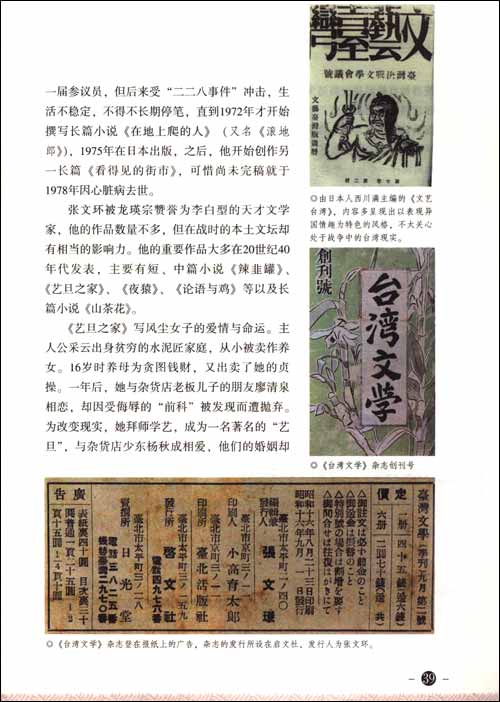 一届参议员，但后来受“二二八事件”冲击，生
活不稳定，不得不长期停笔，直到1972年才开始
撰写长篇小说《在地上爬的人》（又名《滚地
郎》），1975年在日本出版，之后，他开始创作另
一长篇《看得见的街市》，可惜尚未完稿就于
1978年因心脏病去世。
张文环被龙瑛宗赞誉为李白型的天才文学
家，他的作品数量不多，但在战时的本土文坛却
有相当的影响力。他的重要作品大多在20世纪40
年代发表，主要有短、中篇小说《辣韭罐》、
《艺旦之家》、《夜猿》、《论语与鸡》等以及长
篇小说《山茶花》。
《艺旦之家》写风尘女子的爱情与命运。主
人公采云出身贫穷的水泥匠家庭，从小被卖作养
女。16岁时养母为贪图钱财，又出卖了她的贞
操。一年后，她与杂货店老板儿子的朋友廖清泉
相恋，却因受侮辱的“前科”被发现而遭抛弃。
为改变现实，她拜师学艺，成为一名著名的“艺
旦”，与杂货店少东杨秋成相爱，他们的婚姻却
文藝臺灣
臺灣決戰文學會議號
◎由日本人西川满主编的《文艺
台湾》，内容多呈现出以表现异
国情趣为特色的风格，不大关心
处于战争中的台湾现实。
創刊號
台湾文學
◎《台湾文学》杂志创刊号
臺灣文學
定價
一册 四十五錢
六册 二圓七十錢
昭和十六年八月二十三日印刷
昭和十六年九月一日發行
發行人 張文環
印刷人 小高育太郎
印刷所 臺北活版社
發行所 啓文社
賣捌所 日光堂
廣告
◎《台湾文学》杂志登在报纸上的广告，杂志的发行所设在启文社，发行人为张文环。
39